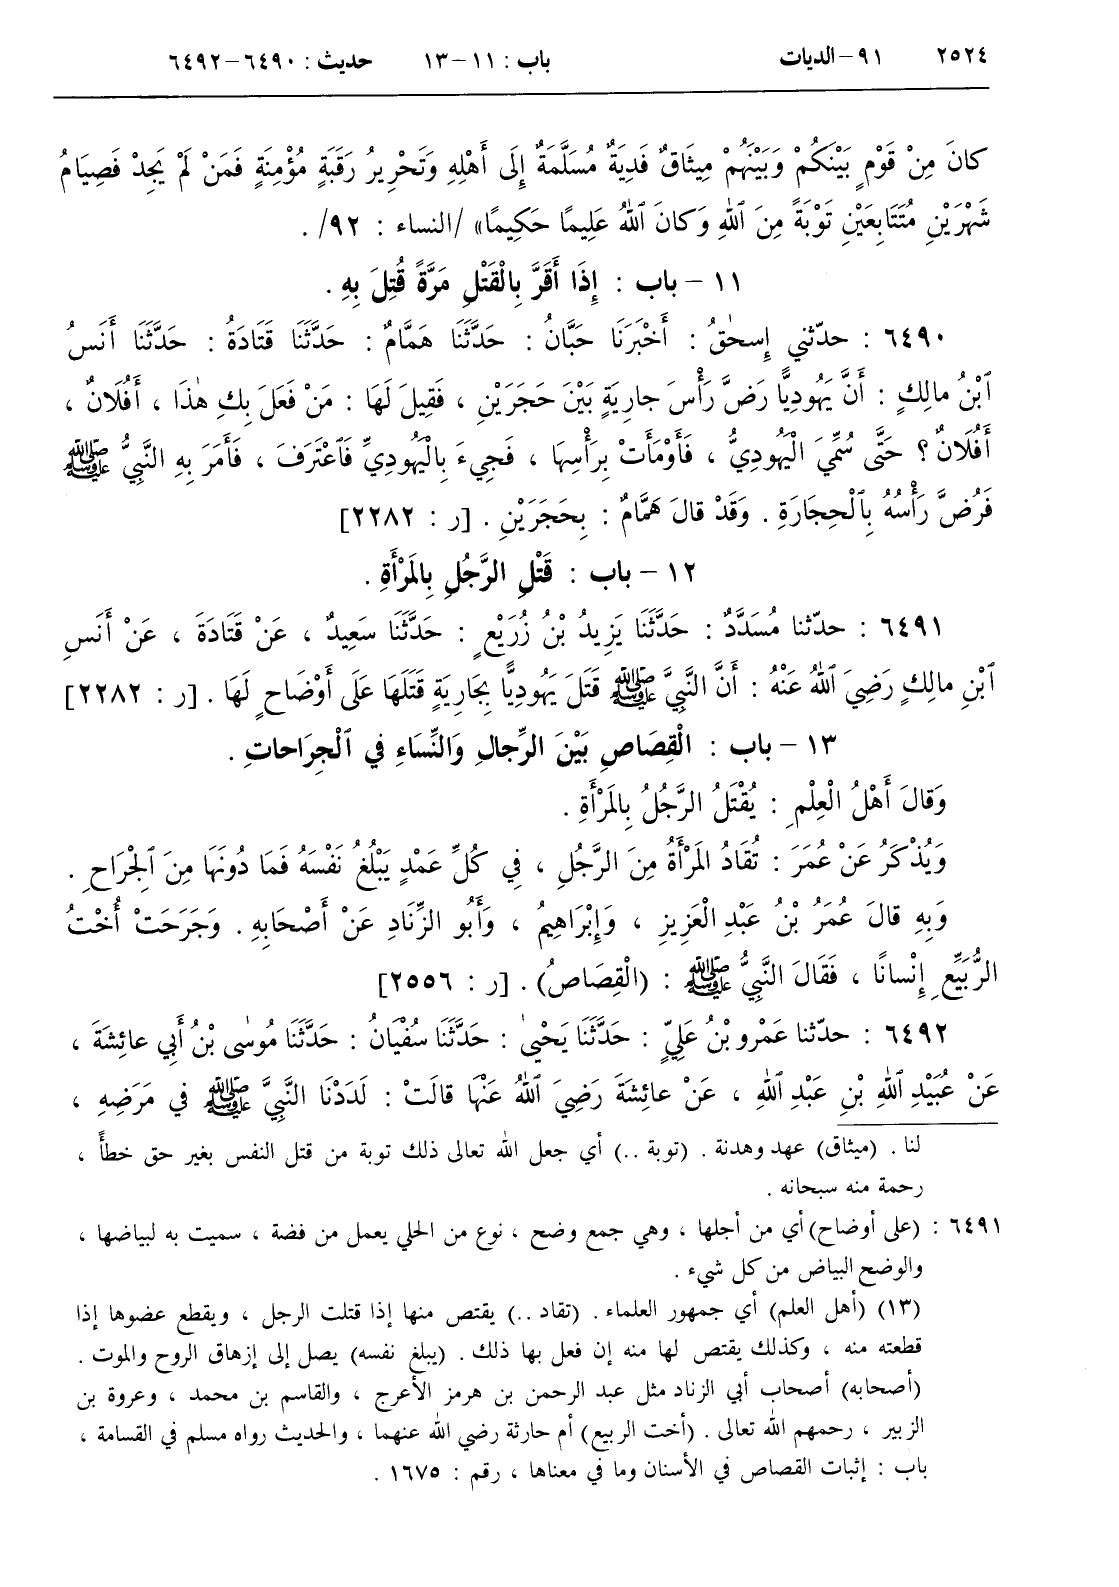 ٢٥٢٤ ٩١-الديات باب : ١١-١٣ حديث : ٦٤٩٠-٦٤٩٢
كانَ مِنْ قَوْمٍ بَيْنَكُمْ وَبَيْنَهُمْ مِيثَاقٌ فَدِيَةٌ مُسَلَّمَةٌ إِلَى أَهْلِهِ وَتَحْرِيرُ رَقَبَةٍ مُؤْمِنَةٍ فَمَنْ لَمْ يَجِدْ فَصِيَامُ
شَهْرَيْنِ مُتَتَابِعَيْنِ تَوْبَةً مِنَ ٱللهِ وَكانَ ٱللهُ عَلِيمًا حَكِيمًا» /النساء : ٩٢/ .
١١ – باب : إِذَا أَقَرَّ بِالْقَتْلِ مَرَّةً قُتِلَ بِهِ .
٦٤٩٠ : حدّثني إِسحٰقُ : أَخْبَرَنَا حَبَّانُ : حَدَّثَنَا هَمَّامٌ : حَدَّثَنَا قَتَادَةُ : حَدَّثَنَا أَنَسُ
ٱبْنُ مالِكٍ : أَنَّ يَهُودِيًّا رَضَّ رَأْسَ جارِيَةٍ بَيْنَ حَجَرَيْنِ ، فَقِيلَ لَهَا : مَنْ فَعَلَ بِكِ هٰذَا ، أَفُلَانٌ ،
أَفُلَانٌ ؟ حَتَّى سُمِّيَ الْيَهُودِيُّ ، فَأَوْمَأَتْ بِرَأْسِهَا ، فَجِيءَ بِالْيَهُودِيِّ فَٱعْتَرَفَ ، فَأَمَرَ بِهِ النَّبِيُّ ﷺ
فَرُضَّ رَأْسُهُ بِٱلْحِجَارَةِ . وَقَدْ قالَ هَمَّامٌ : بِحَجَرَيْنِ . [ر : ٢٢٨٢]
١٢ – باب : قَتْلِ الرَّجُلِ بِالمَرْأَةِ .
٦٤٩١ : حدّثنا مُسَدَّدٌ : حَدَّثَنَا يَزِيدُ بْنُ زُرَيْعٍ : حَدَّثَنَا سَعِيدٌ ، عَنْ قَتَادَةَ ، عَنْ أَنَسِ
ٱبْنِ مالِكٍ رَضِيَ ٱللهُ عَنْهُ : أَنَّ النَّبِيَّ ﷺ قَتَلَ يَهُودِيًّا بِجَارِيَةٍ قَتَلَهَا عَلَى أَوْضَاحٍ لَهَا . [ر : ٢٢٨٢]
١٣ – باب : الْقِصَاصِ بَيْنَ الرِّجالِ وَالنِّسَاءِ فِي ٱلْجِرَاحاتِ .
وَقالَ أَهْلُ الْعِلْمِ : يُقْتَلُ الرَّجُلُ بِالمَرْأَةِ .
وَيُذْكَرُ عَنْ عُمَرَ : تُقَادُ المَرْأَةُ مِنَ الرَّجُلِ ، فِي كُلِّ عَمْدٍ يَبْلُغُ نَفْسَهُ فَمَا دُونَهَا مِنَ ٱلْجِرَاحِ .
وَبِهِ قالَ عُمَرُ بْنُ عَبْدِ الْعَزِيزِ ، وَإِبْرَاهِيمُ ، وَأَبُو الزِّنَادِ عَنْ أَصْحَابِهِ . وَجَرَحَتْ أُخْتُ
الرُّبَيِّعِ إِنْسانًا ، فَقَالَ النَّبِيُّ ﷺ : (الْقِصَاصُ) . [ر : ٢٥٥٦]
٦٤٩٢ : حدّثنا عَمْرو بْنُ عَلِيٍّ : حَدَّثَنَا يَحْيىٰ : حَدَّثَنَا سُفْيَانُ : حَدَّثَنَا مُوسٰى بْنُ أَبِي عائِشَةَ ،
عَنْ عُبَيْدِ ٱللهِ بْنِ عَبْدِ ٱللهِ ، عَنْ عائِشَةَ رَضِيَ ٱللهُ عَنْهَا قالَتْ : لَدَدْنَا النَّبِيَّ ﷺ في مَرَضِهِ ،
لنا . (ميثاق) عهد وهدنة . (توبة ..) أي جعل الله تعالى ذلك توبة من قتل النفس بغير حق خطأً ،
رحمة منه سبحانه .
٦٤٩١ : (على أوضاح) أي من أجلها ، وهي جمع وضح ، نوع من الحلي يعمل من فضة ، سميت به لبياضها ،
والوضح البياض من كل شيء .
(١٣) (أهل العلم) أي جمهور العلماء . (تقاد ..) يقتص منها إذا قتلت الرجل ، ويقطع عضوها إذا
قطعته منه ، وكذلك يقتص لها منه إن فعل بها ذلك . (يبلغ نفسه) يصل إلى إزهاق الروح والموت .
(أصحابه) أصحاب أبي الزناد مثل عبد الرحمن بن هرمز الأعرج ، والقاسم بن محمد ، وعروة بن
الزبير ، رحمهم الله تعالى . (أخت الربيع) أم حارثة رضي الله عنهما ، والحديث رواه مسلم في القسامة ،
باب : إثبات القصاص في الأسنان وما في معناها ، رقم : ١٦٧٥ .